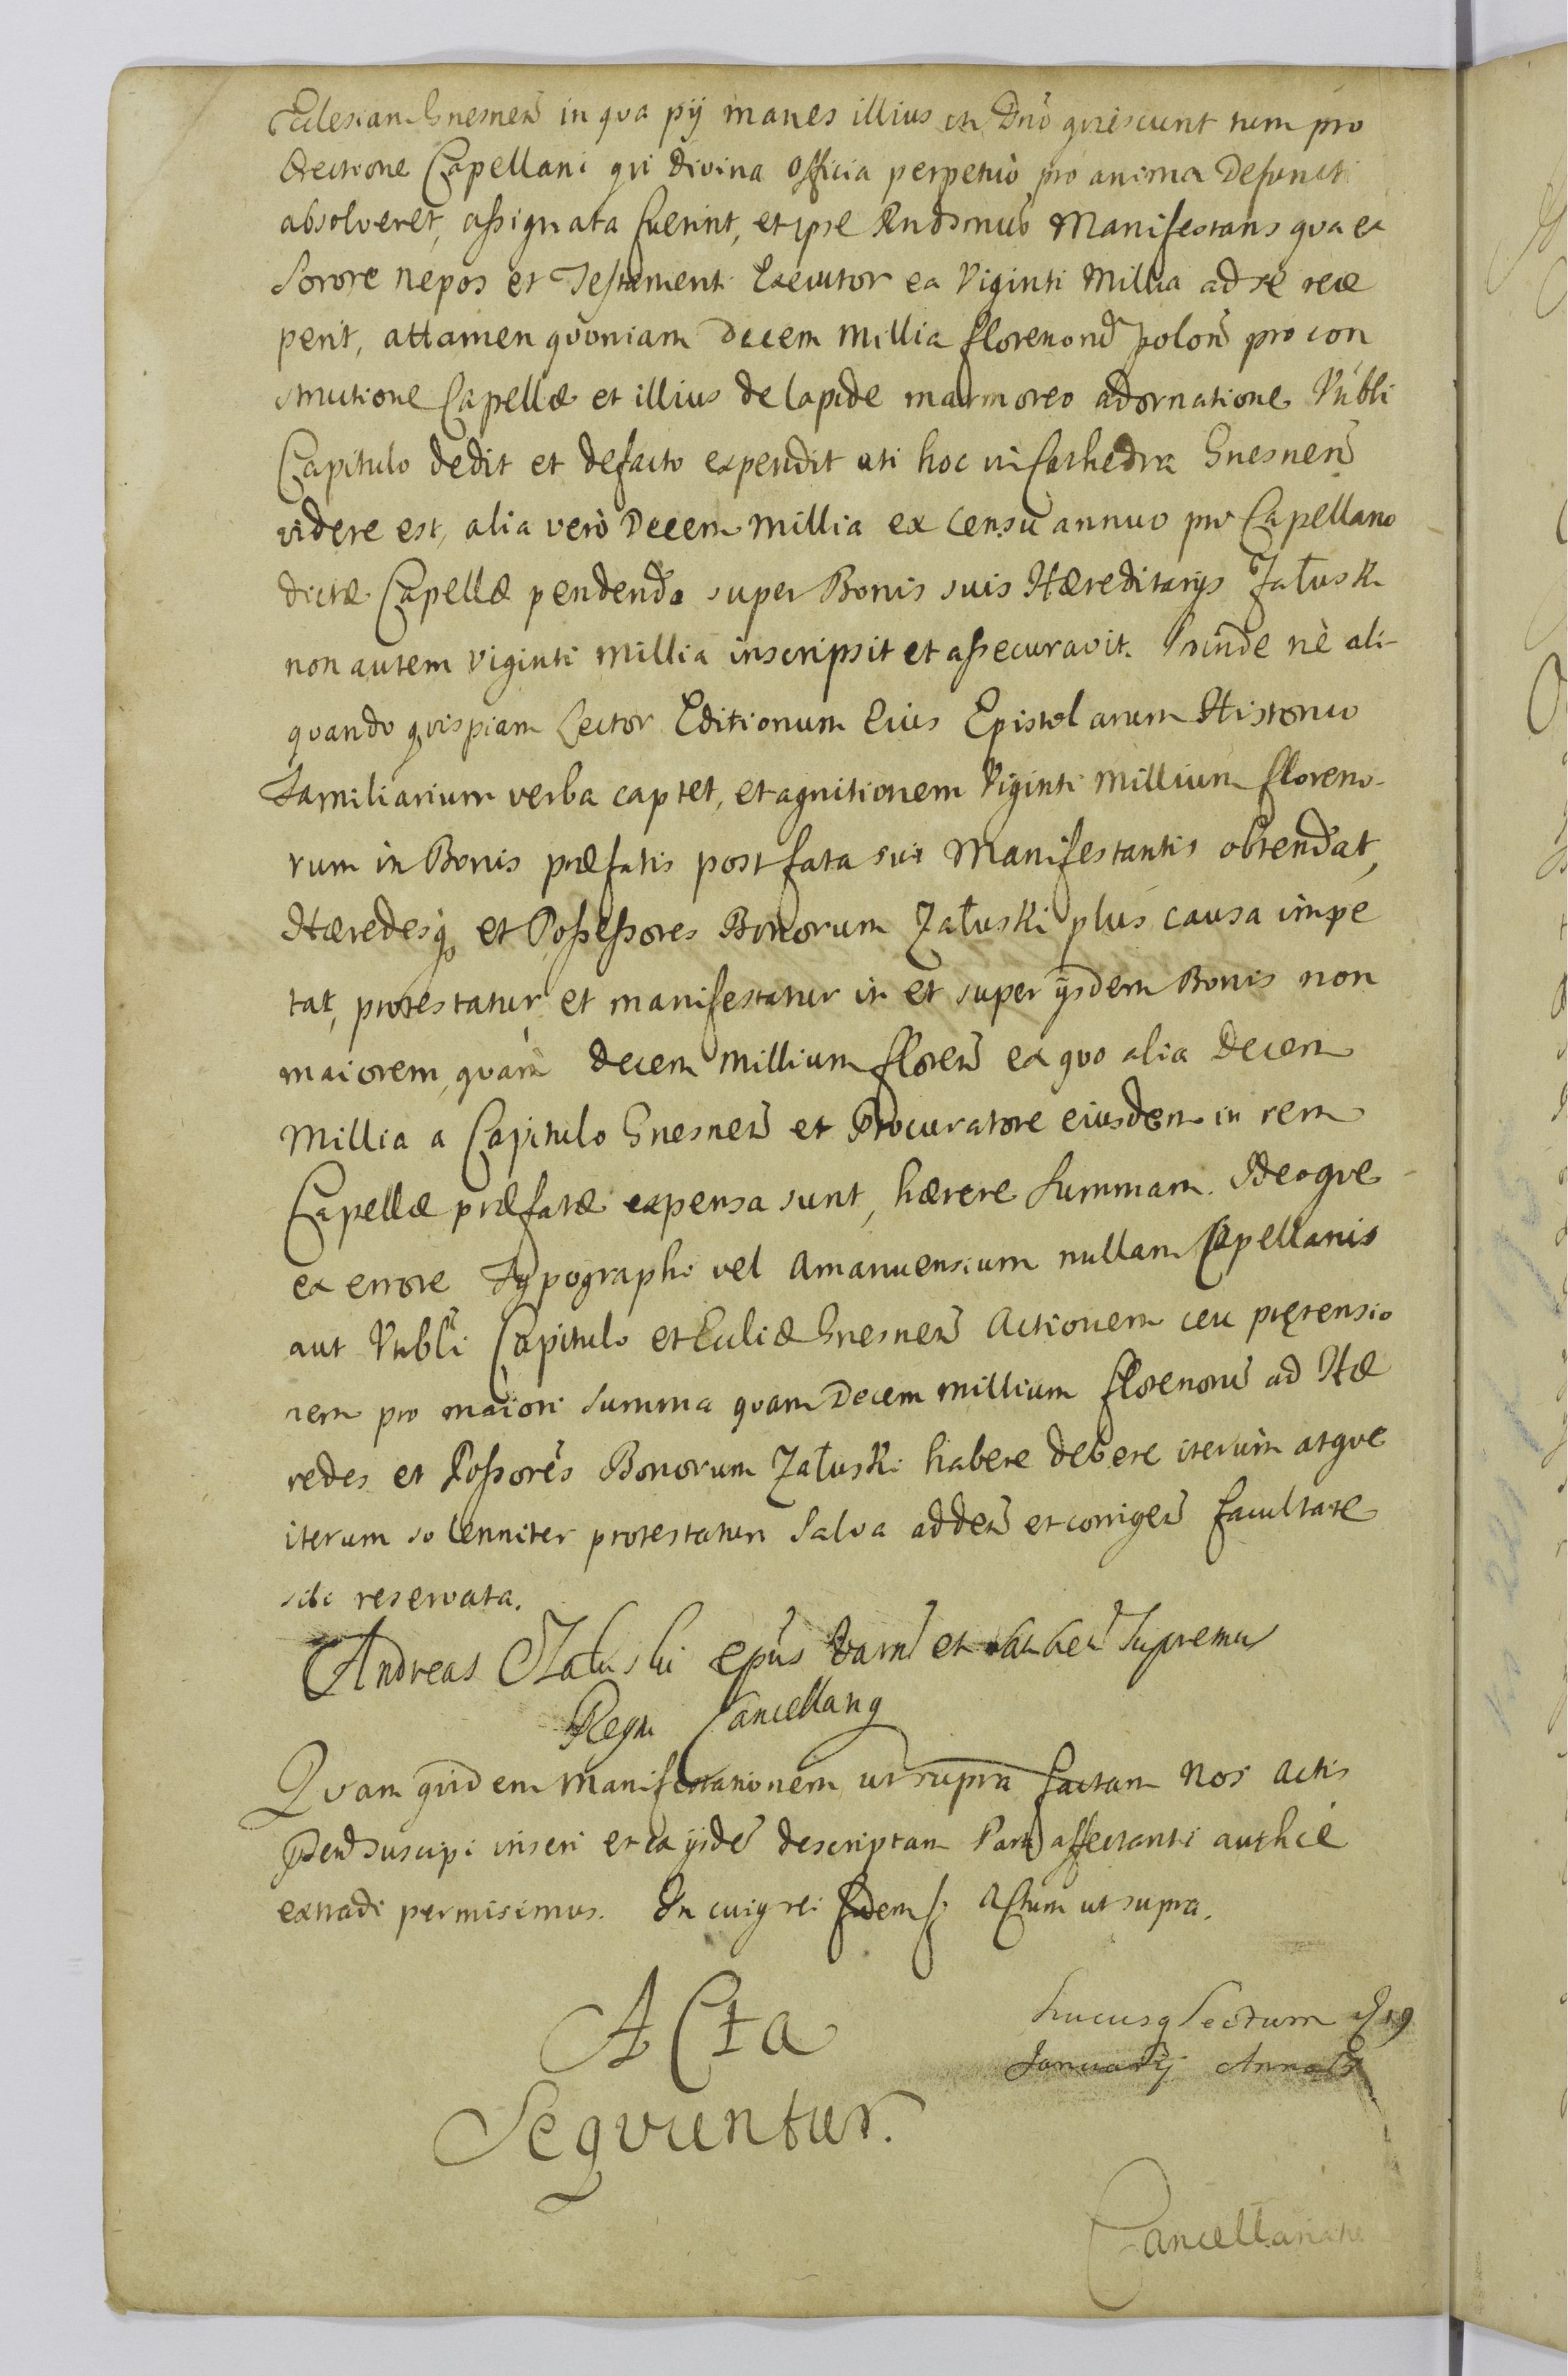 Eclesiam Gnesneñ in qva pij manes illius in Dnō qviescunt tum pro
Erectione Capellani qvi divina officia perpetuò pro anima Defuncti
absolveret, assignata fuerint, et ipse Rndsmūs Manifestans qva ex
Sorore nepos et Testamenti Executor ea Viginti Millia ad se rece
perit, attamen qvoniam Decem Millia florenorū polon̄ pro con
structione Capellæ et illius de lapide marmoreo adornatione Vnbli
Capitulo dedit et defacto expendit uti hoc in Cathedra Gnesnen̄
videre est, alia verò Decem Millia ex Censu annuo pro Capellano
dictæ Capellæ pendendo super Bonis suis Hæreditarijs Załuski
non autem viginti Millia inscripsit et assecuravit. Proinde nè ali-
qvando qvispiam Lector Editionum Eius Epistolarum Historico
Familiarium verba captet, et agnitionem Viginti Millium floreno-
rum in Bonis præfatis post fata sui Manifestantis obtendat,
Hæredesq3 et Possessores Bonorum Załuski plus causa impe
tat, protestatur et manifestatur in et super ijsdem Bonis non
maiorem, qvam decem Millium floren̄ ex qvo alia Decem
Millia a Capitulo Gnesnen̄ et Procuratore eiusdem in rem
Capellæ præfatæ expensa sunt, hærere Summam. Ideoqve
ex errore Typographi vel Amanuensium nullam Capellanis
aut Vnbli Capitulo et Eccliæ Gnesnen̄ Actionem ceu prętensio
nem pro maiori Summa qvam Decem Millium florenorū ad Hæ
redes et Possorēs Bonorum Załuski habere debere iterum atqve
iterum solenniter protestatur Salva adden̄ et corrigen̄ facultate
sibi reservata.
Andreas Załuski epūs Varm̄ et Supremus
Regni Cancellariq
Qvam qvidem Manifestationem ut supra factam Nos Actis
pn̄tibus suscipi inseri et ex ijsdē descriptam Parti affectanti authcē
extradi permisimus. In cuiq rei fidem Actum ut supra.
Acta
Seqvuntur.
hucusq lectum d 19
Januarij Anno
Cancellariatu